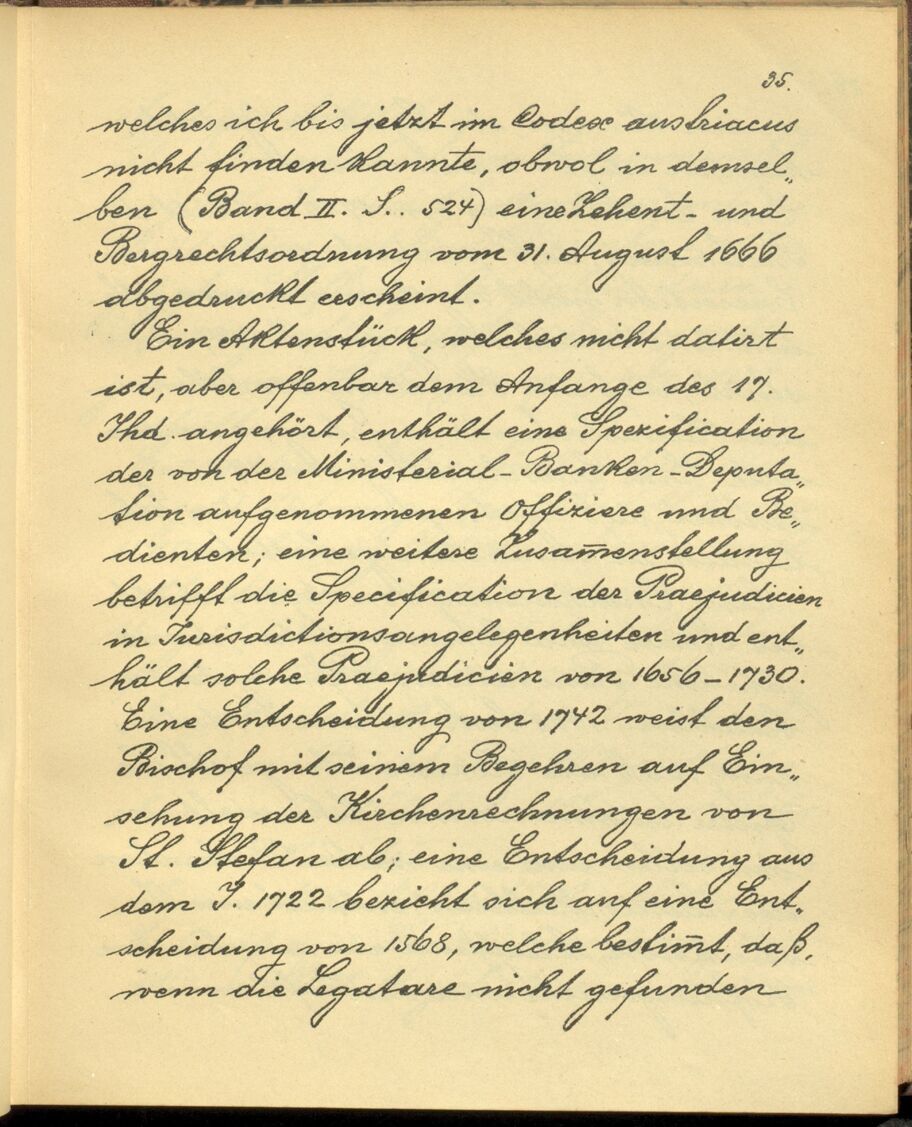 35.
welches ich bis jetzt im Codex austriacus
nicht finden kannte, obwol in demsel„
ben (Band II. S.. 524) eine Zehent- und
Bergrechtsordnung vom 31. August 1666
abgedruckt erscheint.
Ein Aktenstück, welches nicht datirt
ist, aber offenbar dem Anfange des 17.
Jhd. angehört, enthält eine Spezification
der von der Ministerial-Banken-Deputa„
tion aufgenommenen Offiziere und Be„
dienten; eine weitere Zusam̅enstellung
betrifft die Specification der Praejudicien
in Jurisdictionsangelegenheiten und ent„
hält solche Praejudicien von 1656-1730.
Eine Entscheidung von 1742 weist den
Bischof mit seinem Begehren auf Ein„
sehung der Kirchenrechnungen von
St. Stefan ab; eine Entscheidung aus
dem J. 1722 bezieht sich auf eine Ent„
scheidung von 1568, welche bestim̅t, daß,
wenn die Legatare nicht gefunden